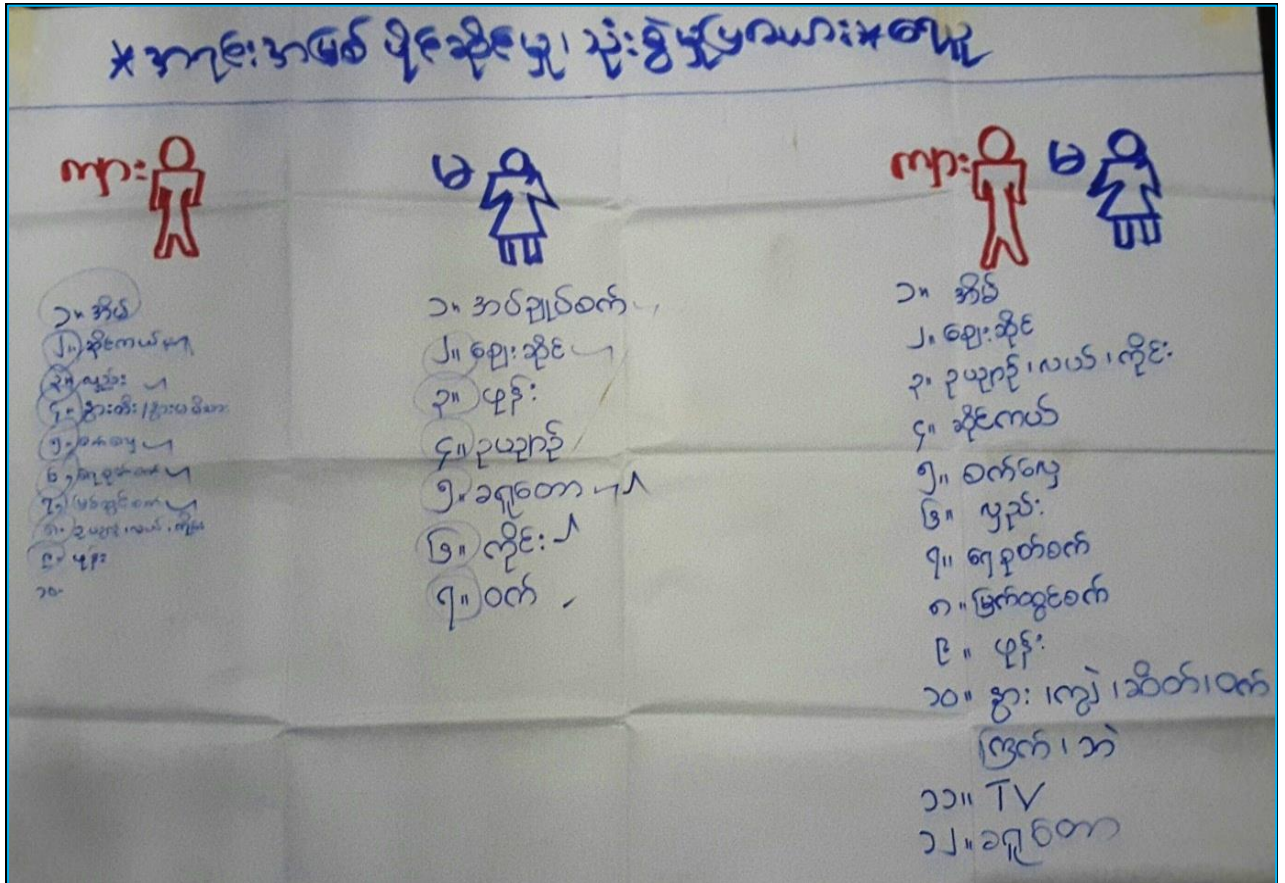 *အရင်းအမြစ် ပိုင်ဆိုင်မှု၊ သုံးစွဲမှုပြဇယား*
ကျား
၁။ အိမ်
၂။ ဆိုင်ကယ်
၃။ လှည်း
၄။ နွားတီး
၅။ စက်လှေ
၆။ ရေစုပ်စက်
၇။ မြက်ထွင်စက်
၈။ ဥယျာဉ်၊ လယ်၊ ကိုင်း
၉။ ဖုန်း
၁၀။
မ
၁။ အပ်ချုပ်စက်
၂။ ဈေးဆိုင်
၃။ ဖုန်း
၄။ ဥယျာဉ်
၅။ ခရုတောာ
၆။ ကိုင်း
၇။ ဝက်
ကျား မ
၁။ အိမ်
၂။ ဈေးဆိုင်
၃။ ဥယျာဉ်၊ လယ်၊ ကိုင်း
၄။ ဆိုင်ကယ်
၅။ စက်လှေ
၆။ လှည်း
၇။ ရေစုတ်စက်
၈။ မြက်ထွင်စက်
၉။ ဖုန်း
၁၀။ နွား၊ ကျွဲ၊ ဆိတ်၊ ဝက်
ကြက်၊ ဘဲ
၁၁။ TV
၁၂။ ခရုတောာ